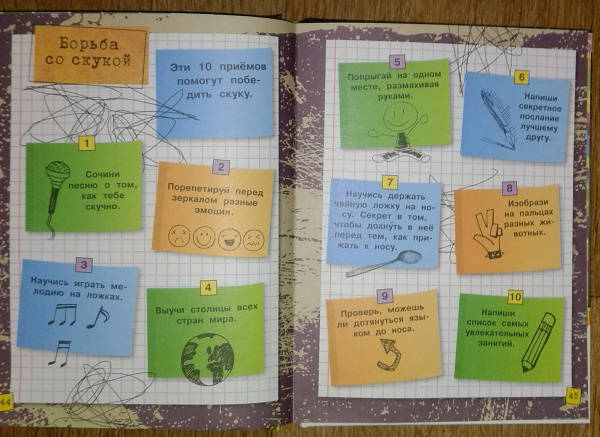 Борьба
со скукой
Эти 10 приёмов
помогут побе-
дить скуку.
1
Сочини
песню о том,
как тебе
скучно.
2
Порепетируй перед
зеркалом разные
эмоции.
3
Научись играть ме-
лодию на ложках.
4
Выучи столицы всех
стран мира.
44
5
Попрыгай на одном
месте, размахивая
руками.
6
Напиши
секретное
послание
лучшему
другу.
7
Научись держать
чайную ложку на но-
су. Секрет в том,
чтобы дохнуть в неё
перед тем, как при-
жать к носу.
8
Изобрази
на пальцах
разных жи-
вотных.
9
Проверь, можешь
ли дотянуться язы-
ком до носа.
10
Напиши
список самых
увлекательных
занятий.
45